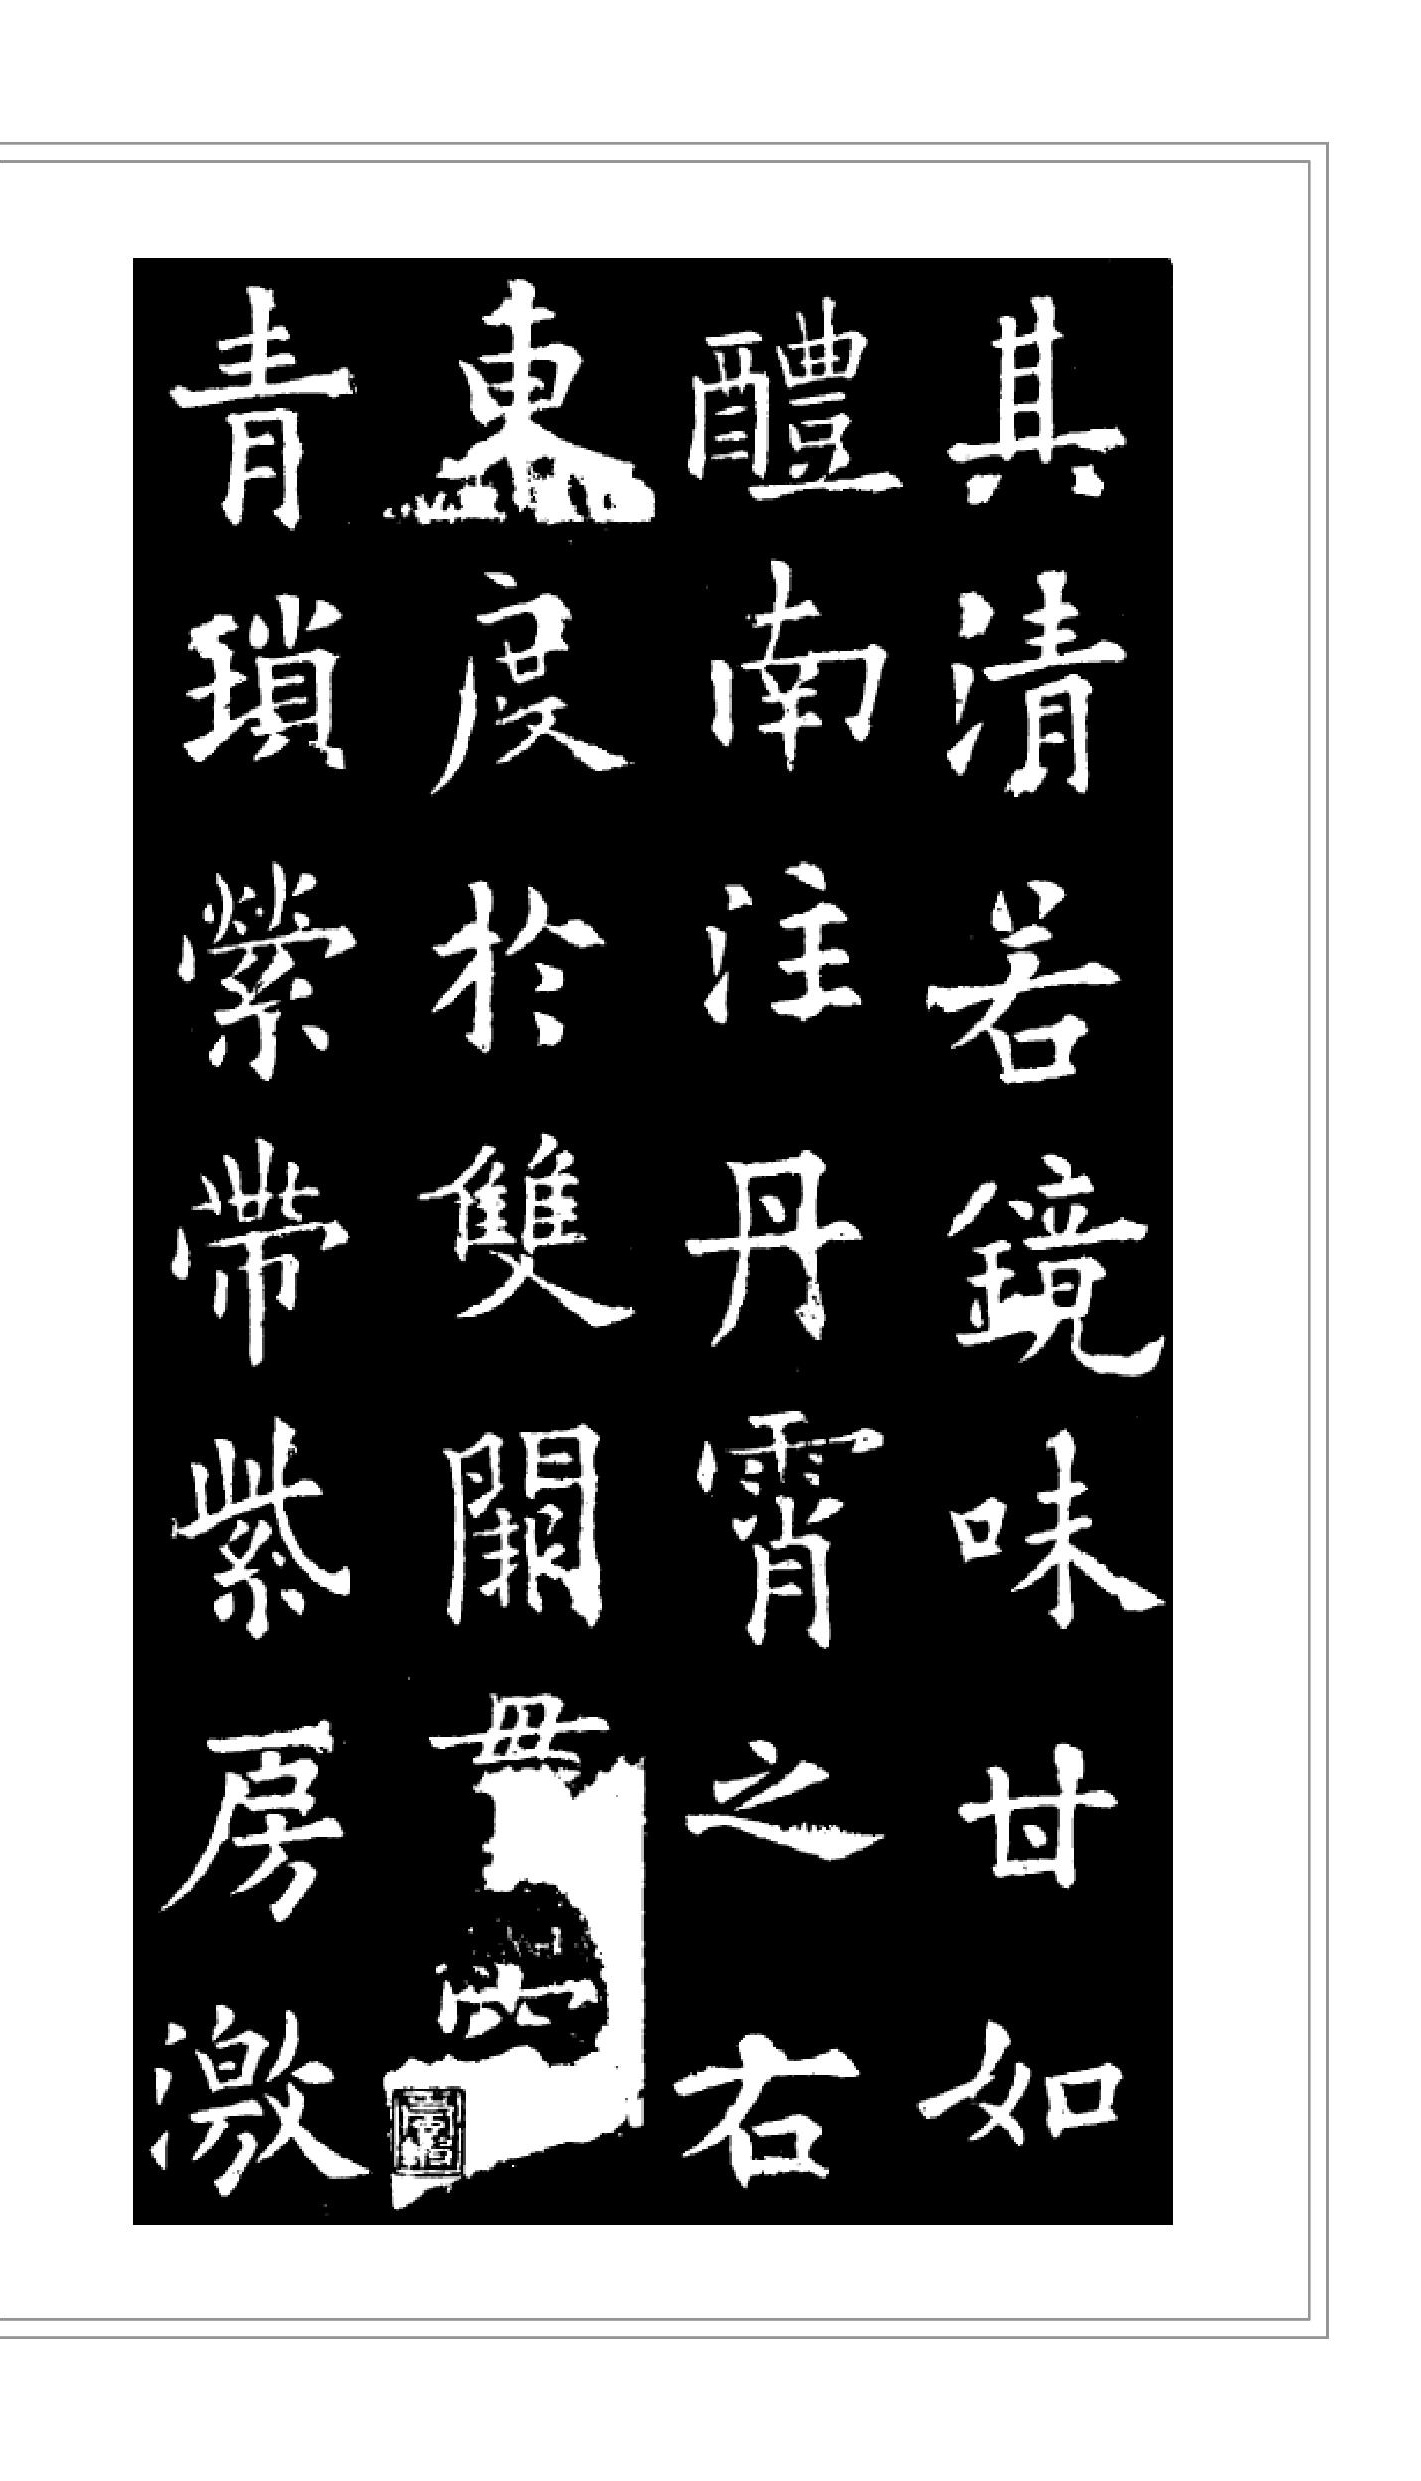 其清若鏡味甘如
醴南注丹霄之右
東度於雙闕貫
青瑣縈帶紫房激